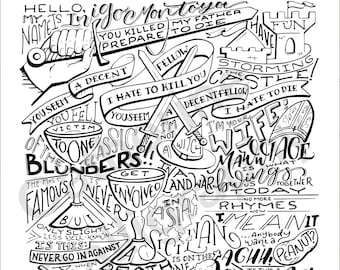 HELLO,
MY
NAME IS
inigo montoya
YOU KILLED MY FATHER
PREPARE TO DIE
HAVE FUN
STORMING
the
CASTLE
YOU SEEM A DECENT FELLOW.
I HATE TO KILL YOU
YOU SEEM A DECENT FELLOW.
I HATE TO DIE
YOU FELL
VICTIM
TO ONE
OF THE CLASSIC
BLUNDERS!!
THE MOST
FAMOUS
NEVER
GET
INVOLVED
IN A
LAND WAR
IN
ASIA
BUT
ONLY SLIGHTLY
LESS WELL KNOWN
IS THIS:
NEVER GO IN AGAINST
A
SICILIAN
WHEN
DEATH
I'M NOT
A WITCH
I'M YOUR
WIFE
MAWWAGE
IS WHAT
bwings
US
TOGETHER
TODAY
NO MORE
RHYMES
NOW
I MEAN IT
Anybody
want a
PEANUT?